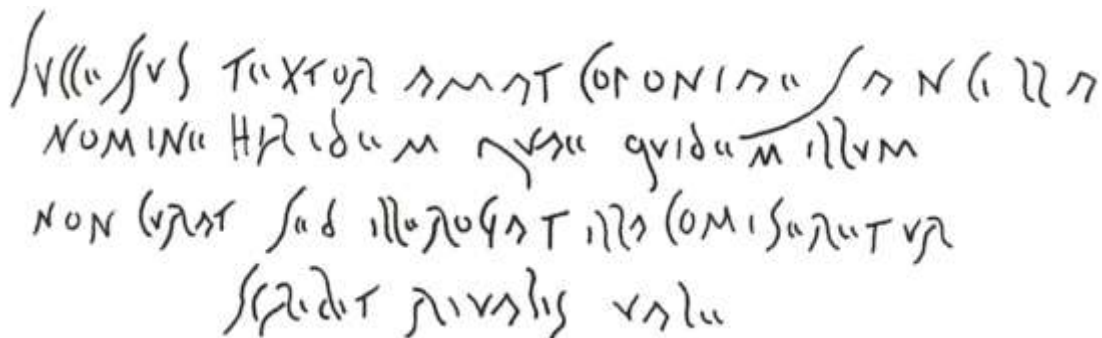 SVCCESSVS TEXTOR AMAT COPONIAES ANCILLA
NOMINE HIRIDEM QVAE QVIDEM ILLVM
NON CVRAT SED ILLE ROGAT ILLA COMISERETVR
SCRIBIT RIVALIS VALE